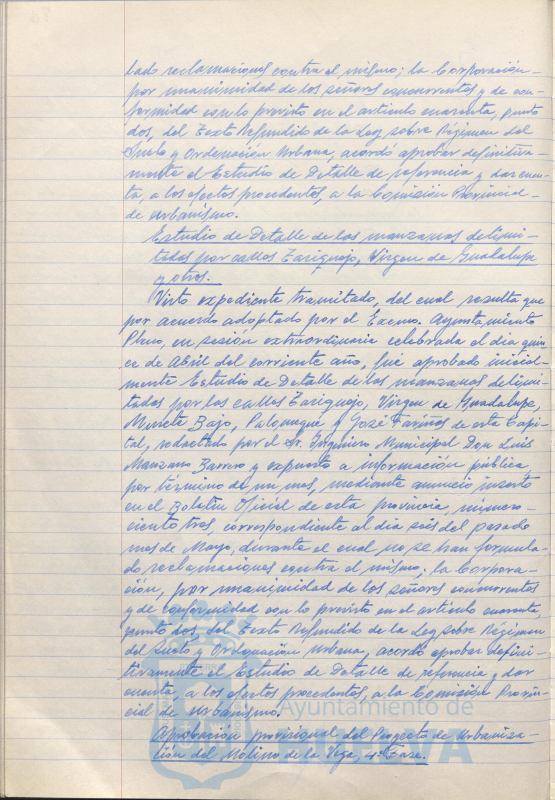 tado reclamaciones contra el mismo; la Corporación
por unanimidad de los señores concurrentes y de con-
formidad con lo previsto en el artículo cuarenta, punto
dos, del Texto Refundido de la Ley sobre Régimen del
Suelo y Ordenación Urbana, acordó aprobar definitiva-
mente el Estudio de Detalle de referencia y dar cuen-
ta, a los efectos procedentes, a la Comisión Provincial
de Urbanismo.
Estudio de Detalle de las manzanas delimi-
tadas por calles Tariquejo, Virgen de Guadalupe
y otros.
Visto expediente tramitado, del cual resulta que
por acuerdo adoptado por el Excmo. Ayuntamiento
Pleno, en sesión extraordinaria celebrada el día quin-
ce de Abril del corriente año, fue aprobado inicial-
mente Estudio de Detalle de las manzanas delimi-
tadas por las calles Tariquejo, Virgen de Guadalupe,
Bajo, Palomeque y José Fariñas de esta Capi-
tal, redactado por el Sr. Ingeniero Municipal Don Luis
Manzano Barrero y expuesto a información pública,
por término de un mes, mediante anuncio inserto
en el Boletín Oficial de esta provincia, número
ciento tres correspondiente al día seis del pasado
mes de Mayo, durante el cual no se han formula-
do reclamaciones contra el mismo; la Corpora-
ción, por unanimidad de los señores concurrentes
y de conformidad con lo previsto en el artículo cuarenta,
punto dos, del Texto Refundido de la Ley sobre Régimen
del Suelo y Ordenación Urbana, acordó aprobar defini-
tivamente el Estudio de Detalle de referencia y dar
cuenta, a los efectos procedentes, a la Comisión Provin-
cial de Urbanismo.
Ayuntamiento de
HUELVA
Aprobación provisional del Proyecto de Urbaniza-
ción del Molino de la Vega, 4ª Fase.